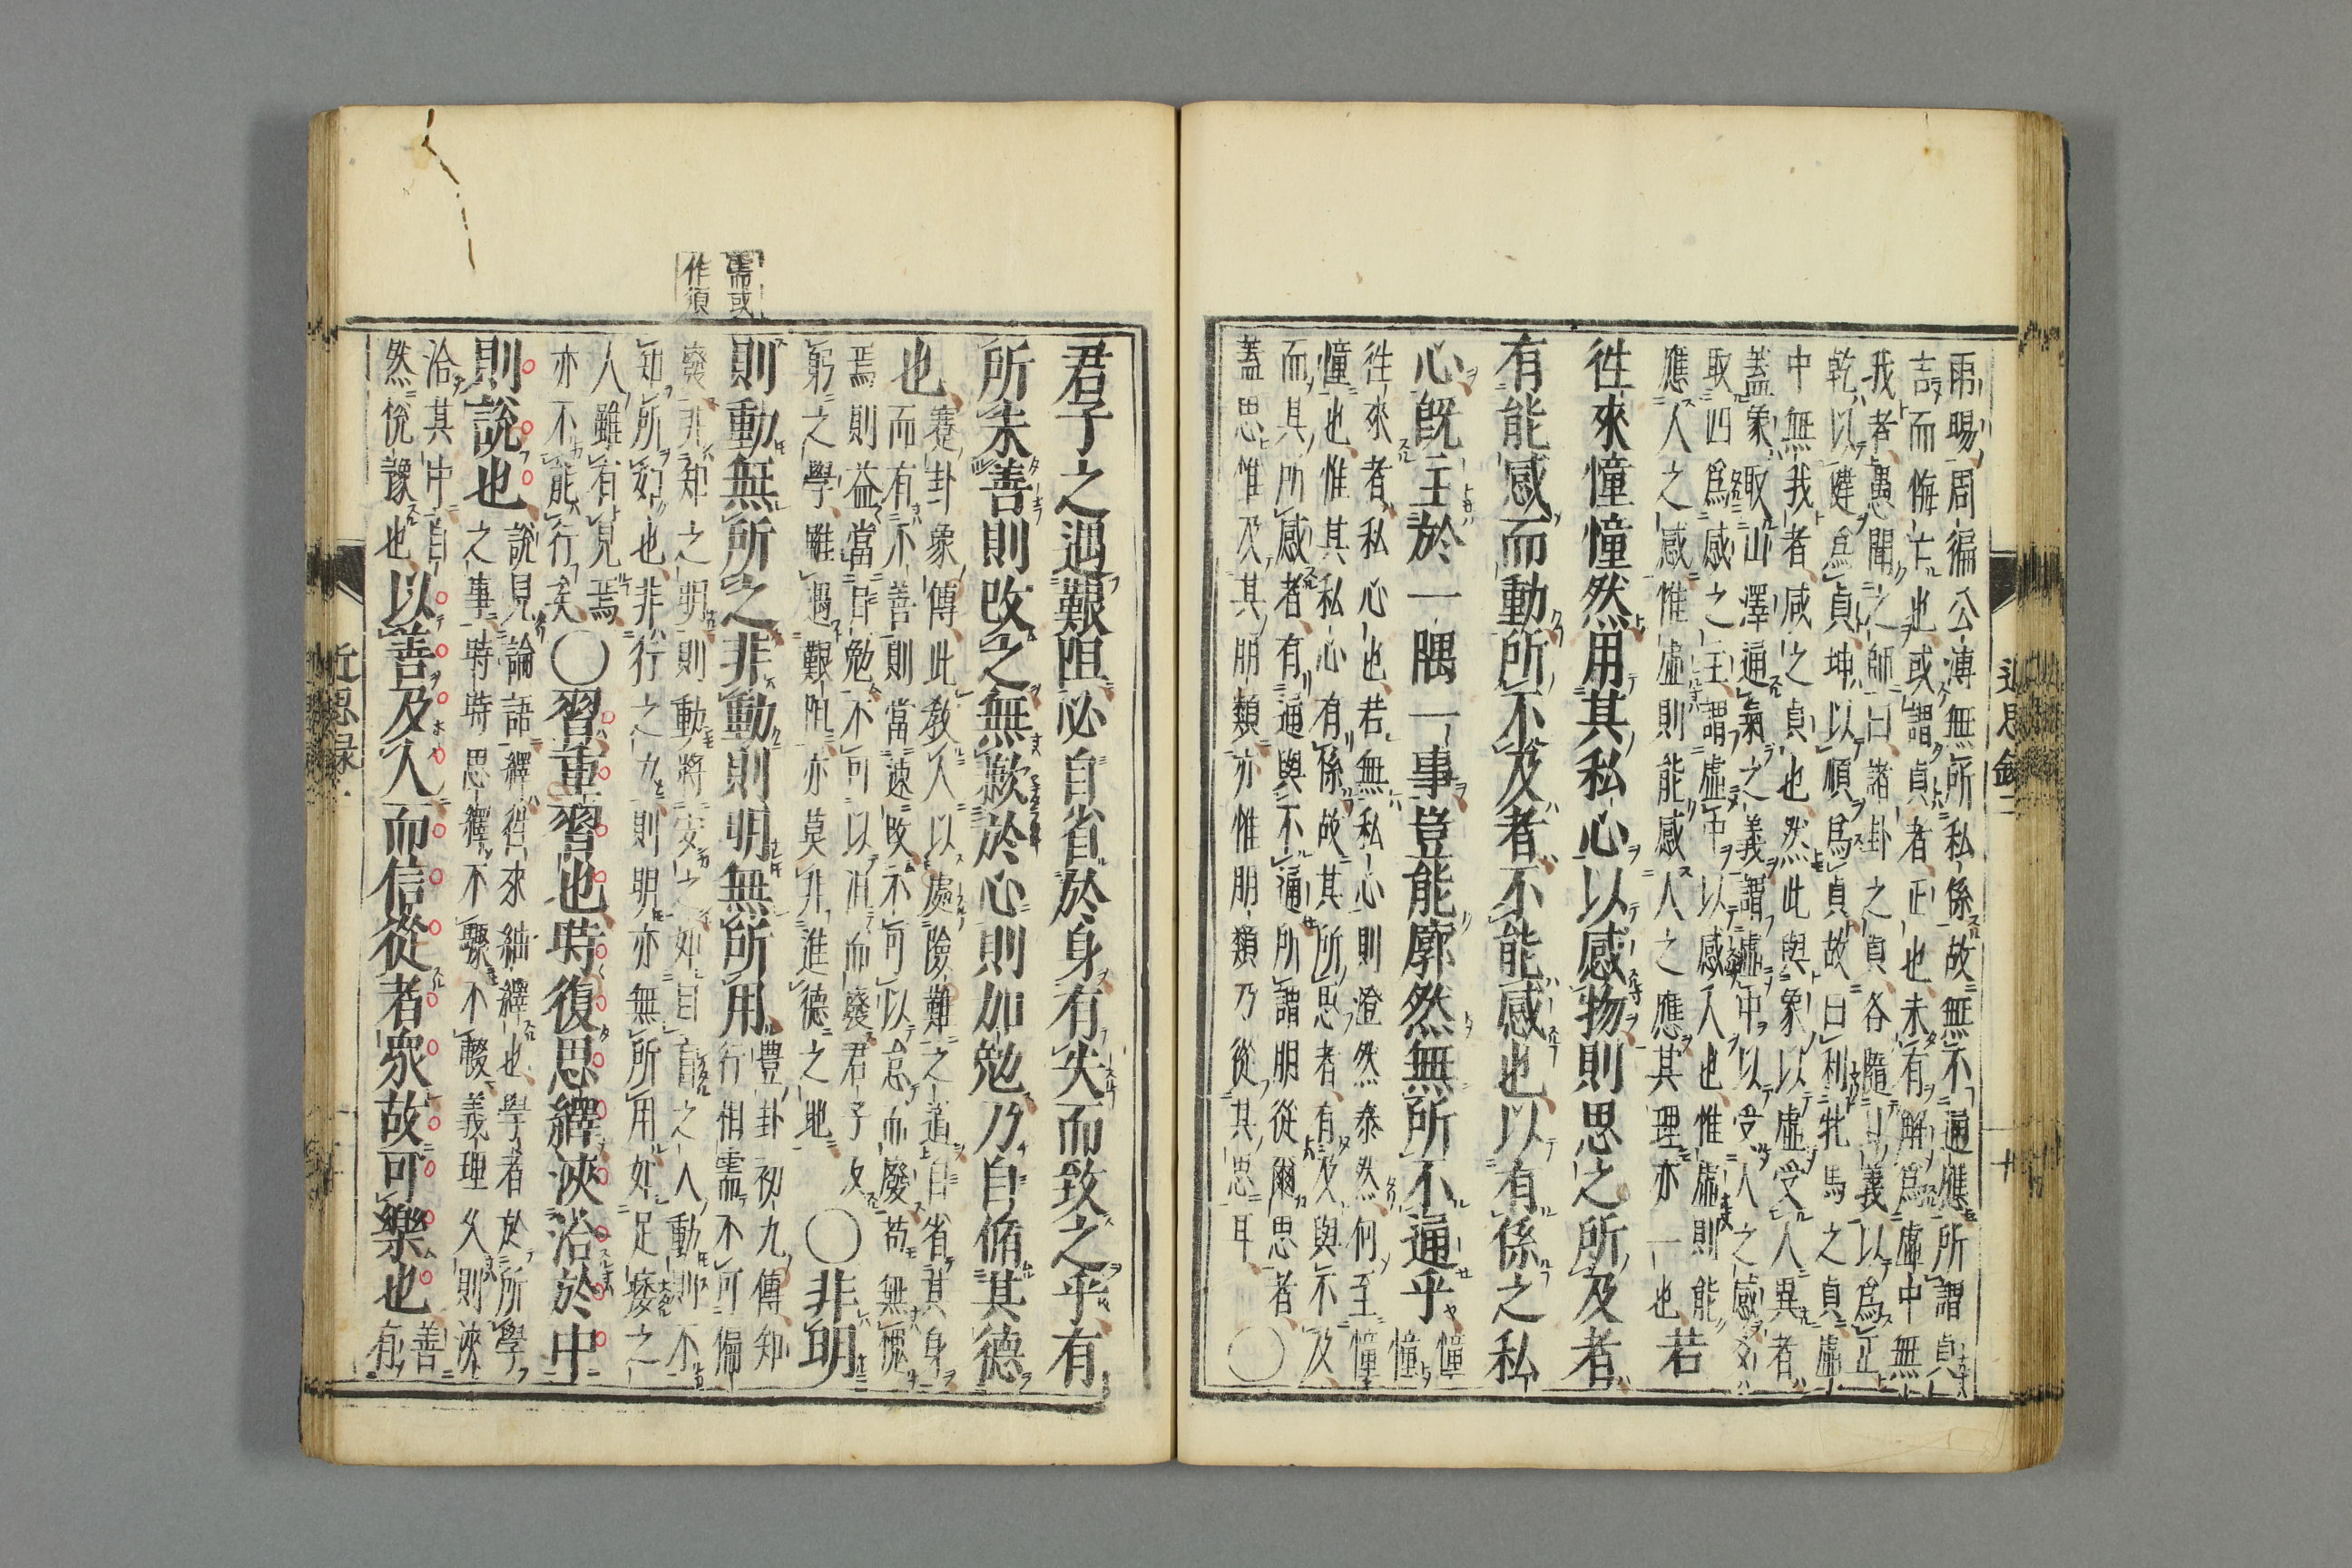 雨暘周徧公溥無所私係故無不通應所謂貞
吉而悔亡也或謂貞者正也未有解爲虛中無
我者愚聞之師曰諸卦之貞各隨其義以爲正
乾以健爲貞坤以順爲貞故曰利牝馬之貞虛
中無我者咸之貞也然此與象以虛受人異者
蓋象取山澤通氣之義謂虛中以受人之感爻
取四爲感之主謂虛中以感人也惟虛則能
應人之感惟虛則能感人之應其理亦一也若
徃來憧憧然用其私心以感物則思之所及者
有能感而動所不及者不能感也以有係之私
心旣主於一隅一事豈能廓然無所不通乎憧憧
徃來者私心也若無私心則澄然泰然何至憧
憧也惟其私心有係故其所思者有及與不及
而其所感者有通與不通所謂朋從爾思者
蓋思惟及其朋類亦惟朋類乃從其思耳〇
近思錄二
十
君子之遇艱阻必自省於身有失而致之乎有
所未善則改之無歉於心則加勉乃自脩其德
也蹇卦象傳此教人以處險難之道自省其身
而有不善則當速改不可以怠而廢苟無愧
焉則益當自勉不可以沮而廢君子反
躬之學雖遇艱阻亦莫非進德之地〇非明
則動無所之非動則明無所用豐卦初九傳知
行相需不可偏
廢非知之明則動將安之如目盲之人動則不
知所如也非行之力則明亦無所用如足痿之
人雖有見焉
亦不能行矣〇習重習也時復思繹浹洽於中
則說也說見論語繹徃來紬繹也學者於所學
之事時時思繹不驟不輟義理久則浹
洽其中自
然悅豫也以善及人而信從者衆故可樂也善
有
需或
作須
近思錄